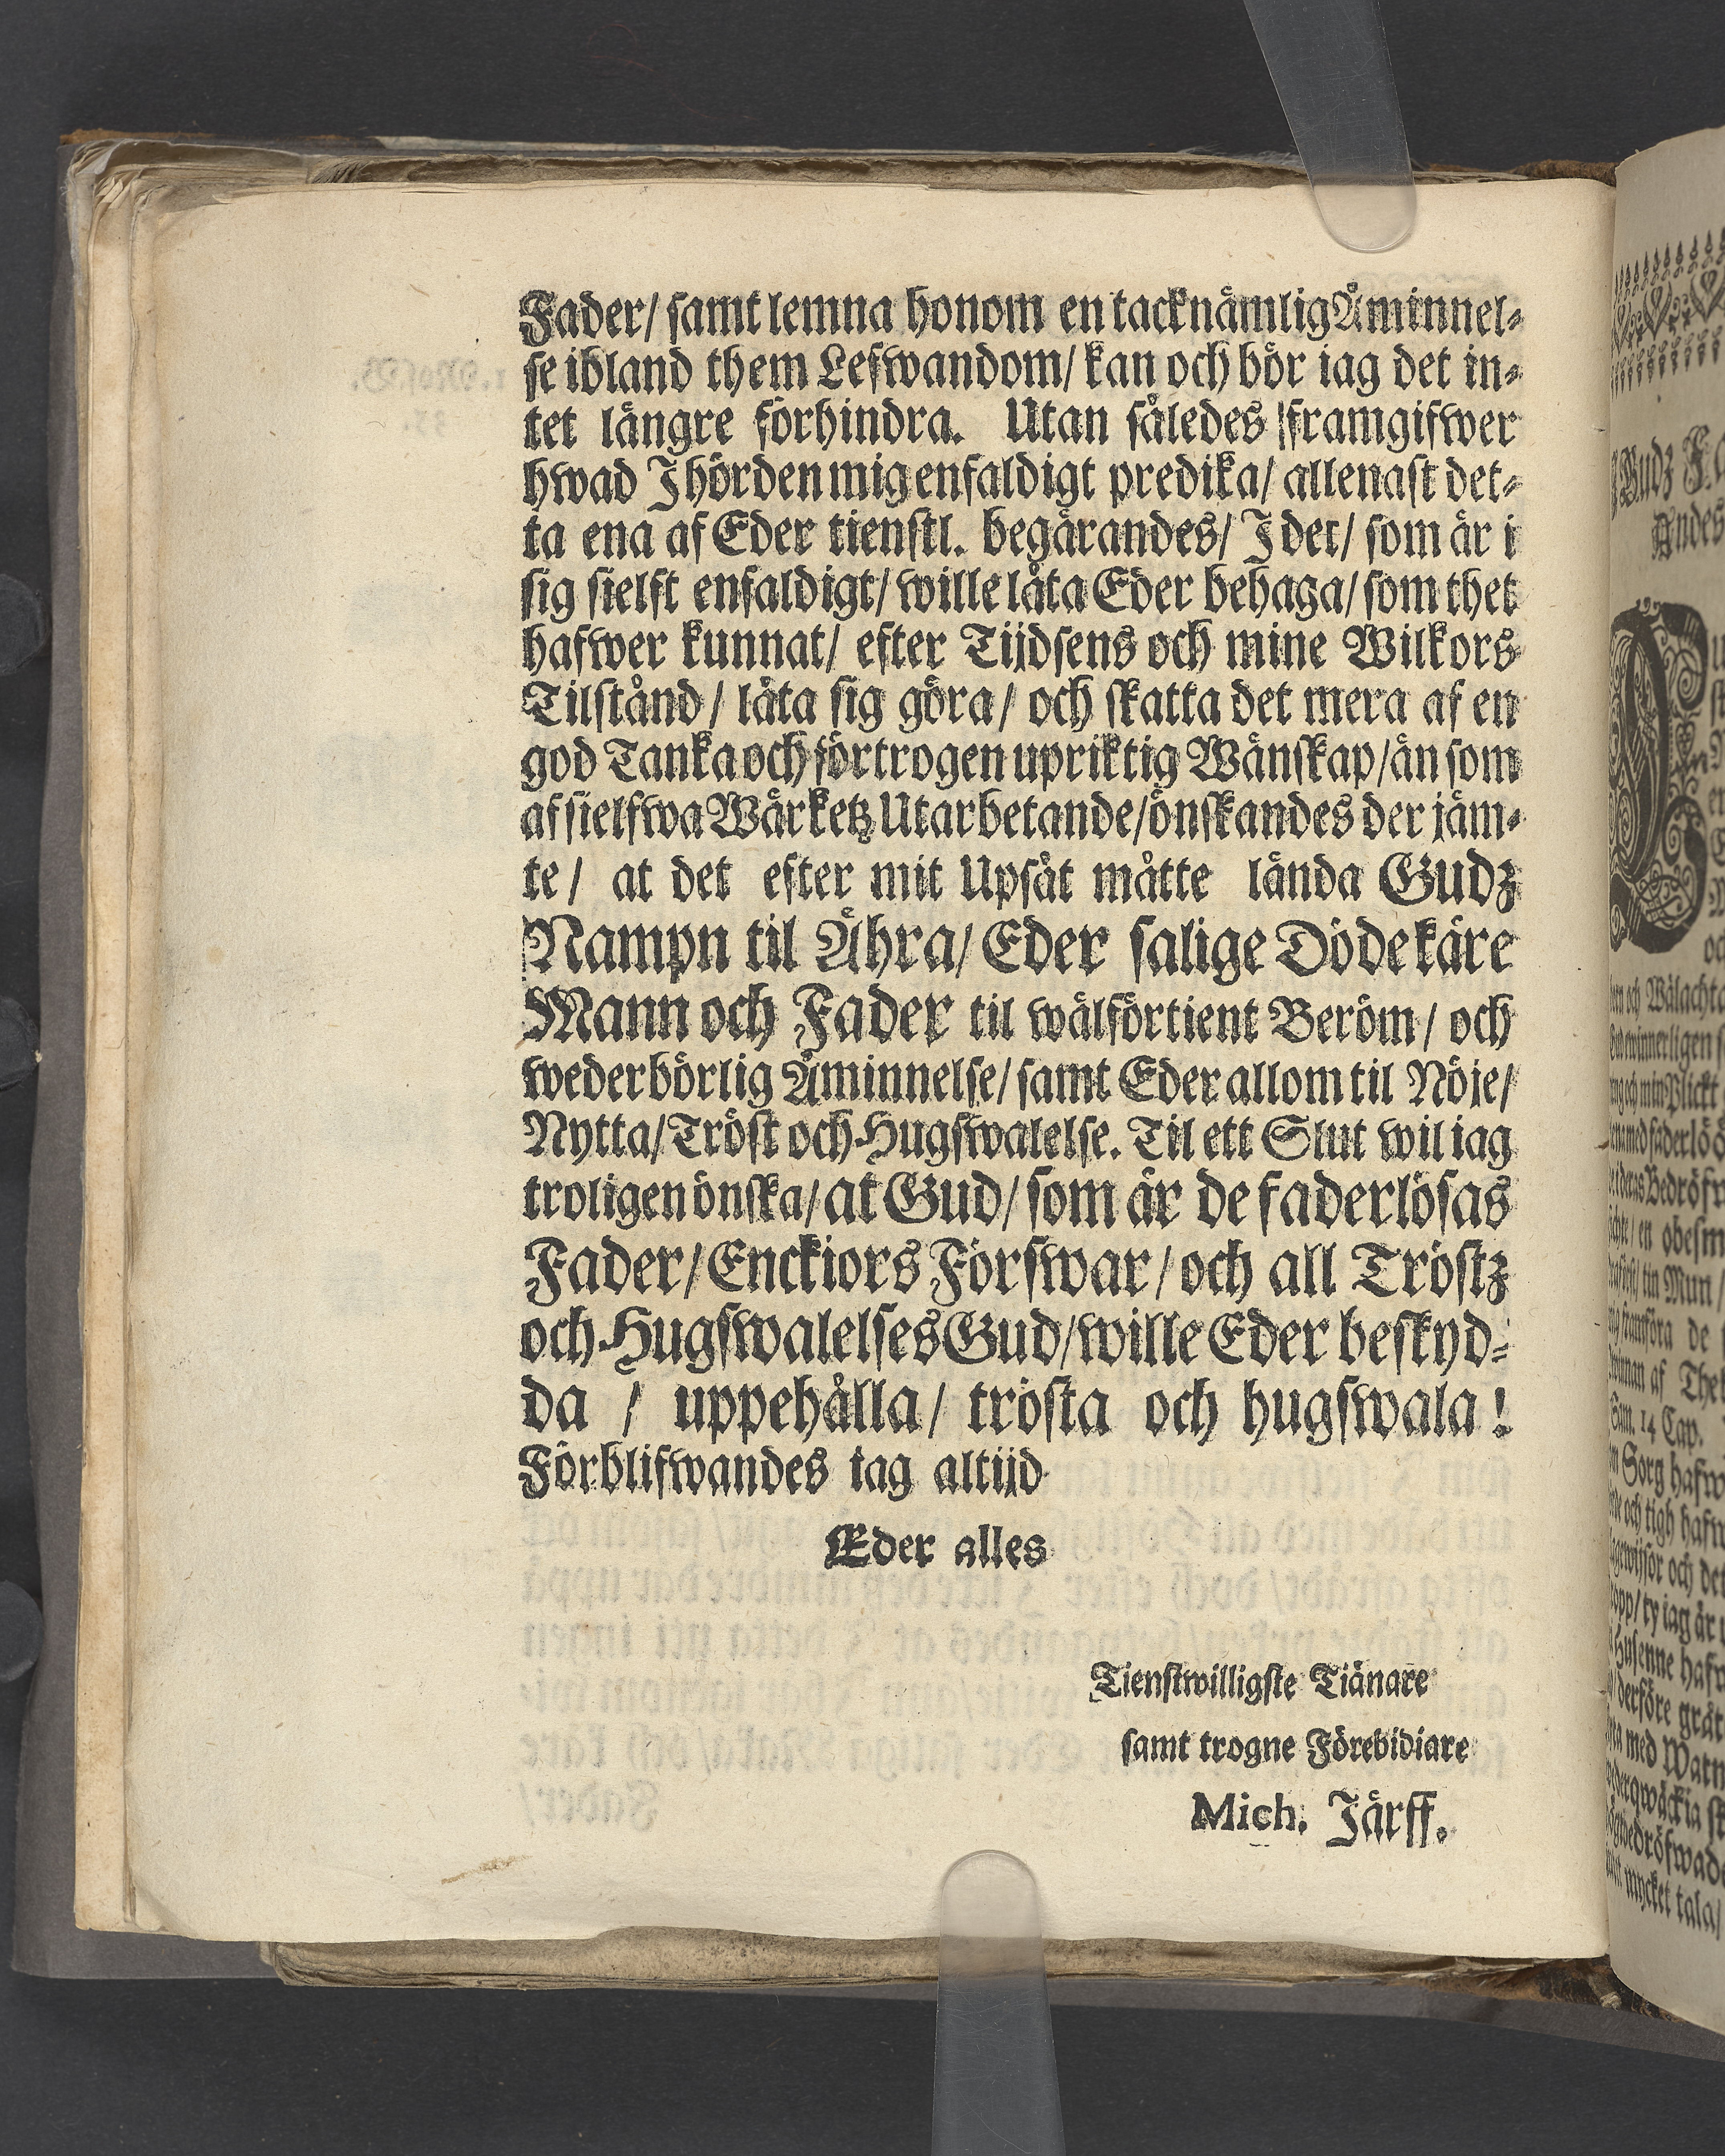 Fader/ samt lemna honom en tacknämlig Åminnel-
se ibland them Lefwandom/ kan och bör iag det in-
tet längre förhindra. Utan således framgifwer
hwad J hörden mig enfaldigt predika/ allenast det-
ta ena af Eder tienstl. begärandes/ J det/ som är i
sig sielft enfaldigt/ wille låta Eder behaga/ som thet
hafwer kunnat/ efter Tijdsens och mine Wilkors
Tilstånd/ låta sig göra/ och skatta det mera af en
god Tanka och förtrogen upriktig Wänskap/ än som
af sielfwa Wärketz Utarbetande/ önskandes der jäm-
te/ at det efter mit Upsåt måtte lända Gudz
Nampn til Ähra/ Eder salige Döde käre
Mann och Fader til wälförtient Beröm/ och
wederbörlig Åminnelse/ samt Eder allom til Nöje/
Nytta/ Tröst och Hugswalelse. Til ett Slut wil iag
troligen önska/ at Gud/ som är de faderlösas
Fader/ Enckiors Förswar/ och all Tröstz
och Hugswalelses Gud/ wille Eder beskyd-
da / uppehålla/ trösta och hugswala!
Förblifwandes iag altijd
Eder alles
Tienstwilligste Tiänare
samt trogne Förebidiare
Mich. Järff.